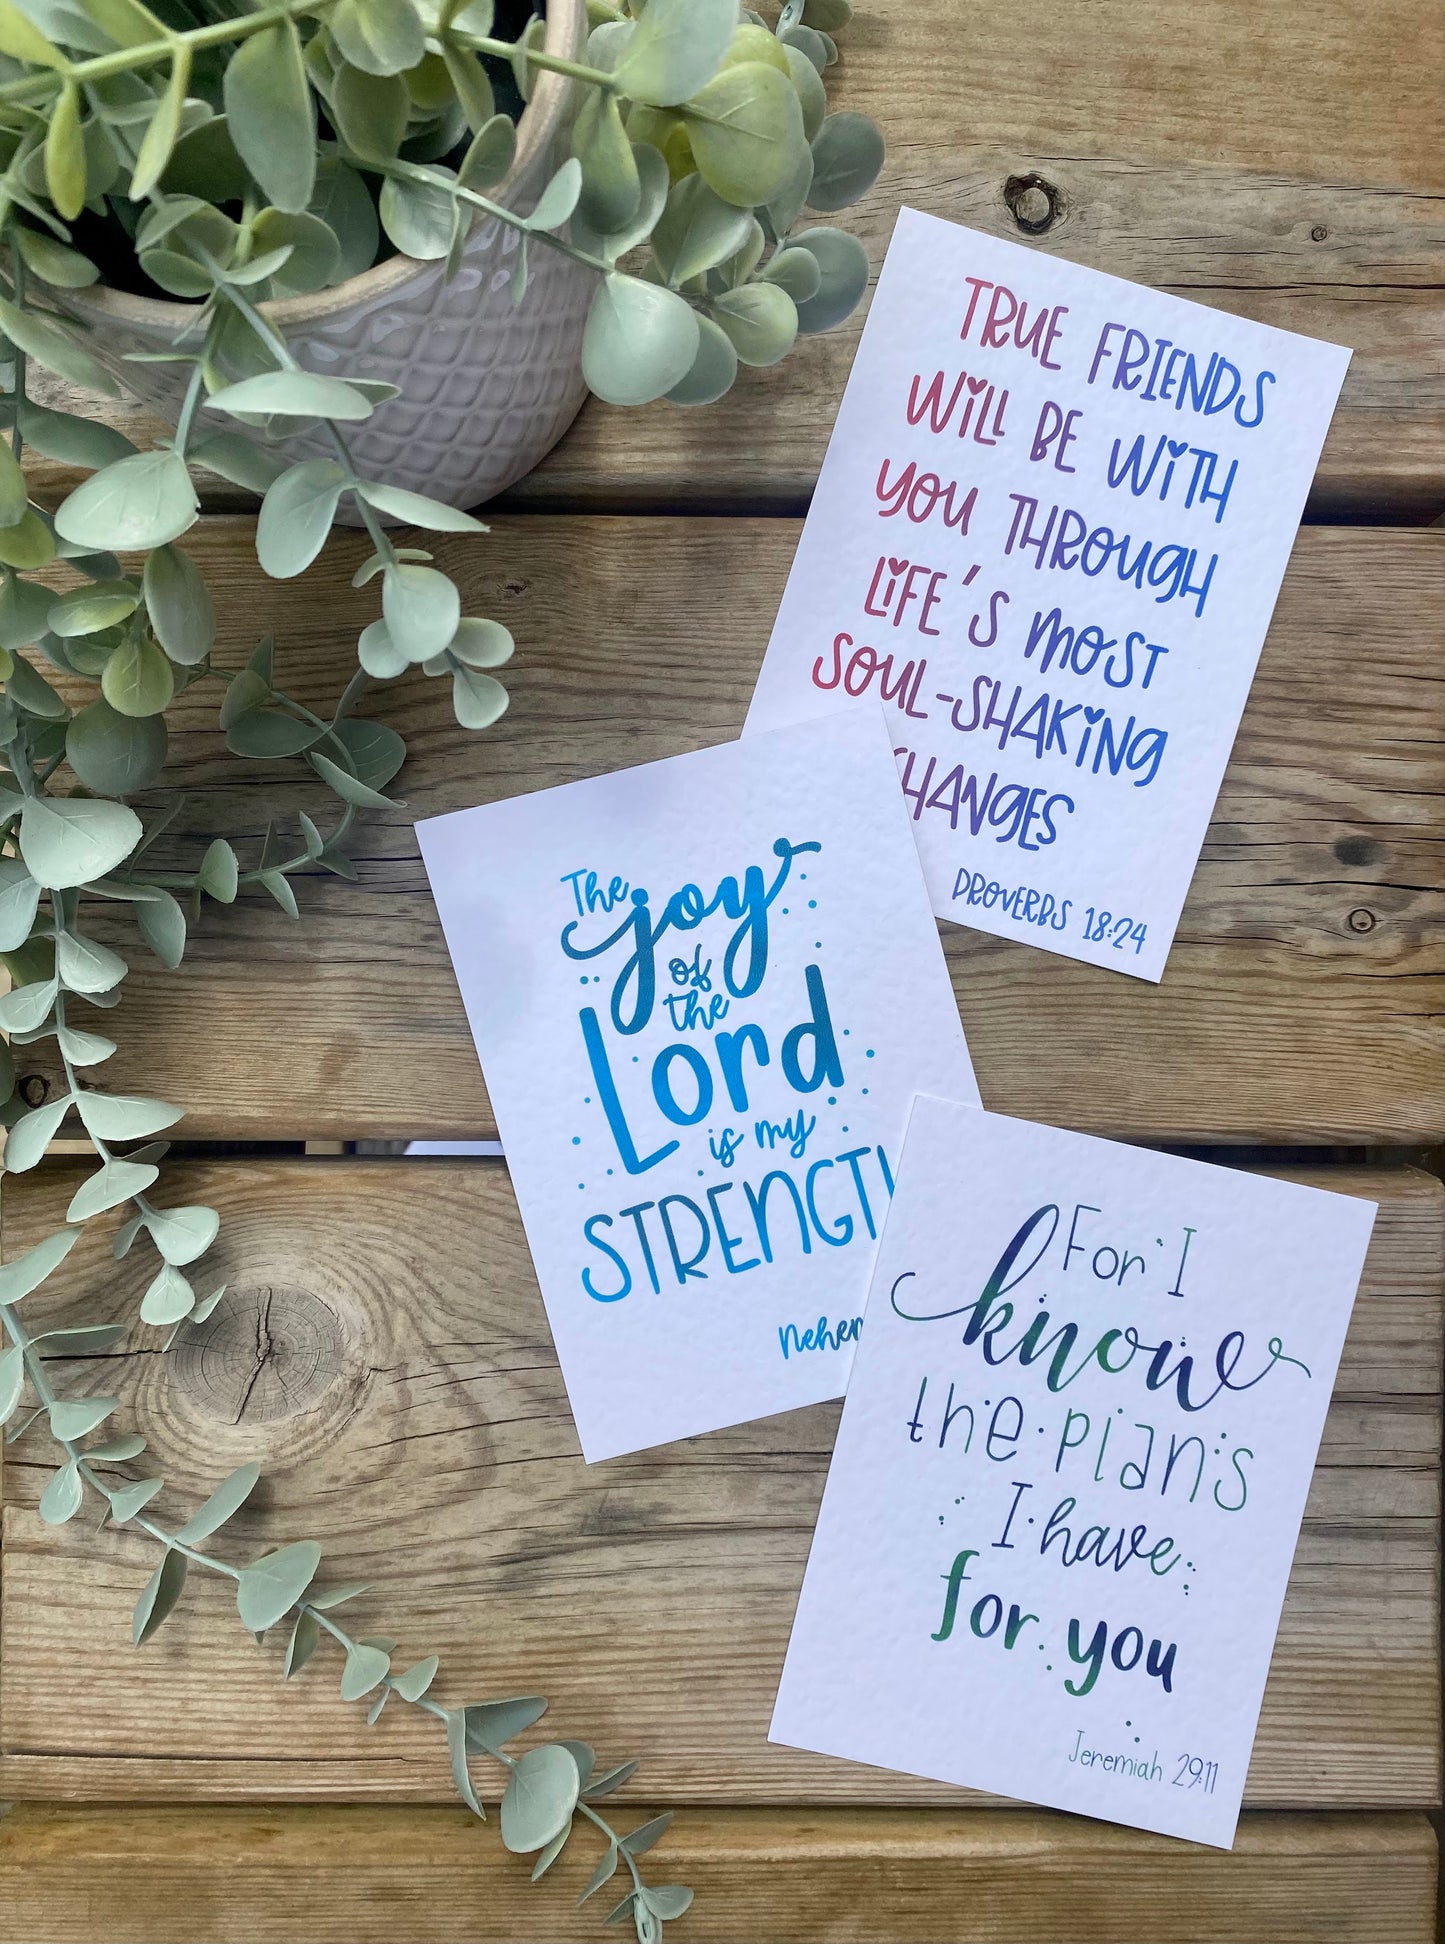 TRUE FRIENDS
WILL BE WITH
YOU THROUGH
LIFE'S MOST
SOUL-SHAKING
CHANGES
PROVERBS 18:24
The joy
of
the
Lord
is my
STRENGTH
Nehem
For I
know
the plans
I have
for you
Jeremiah 29:11